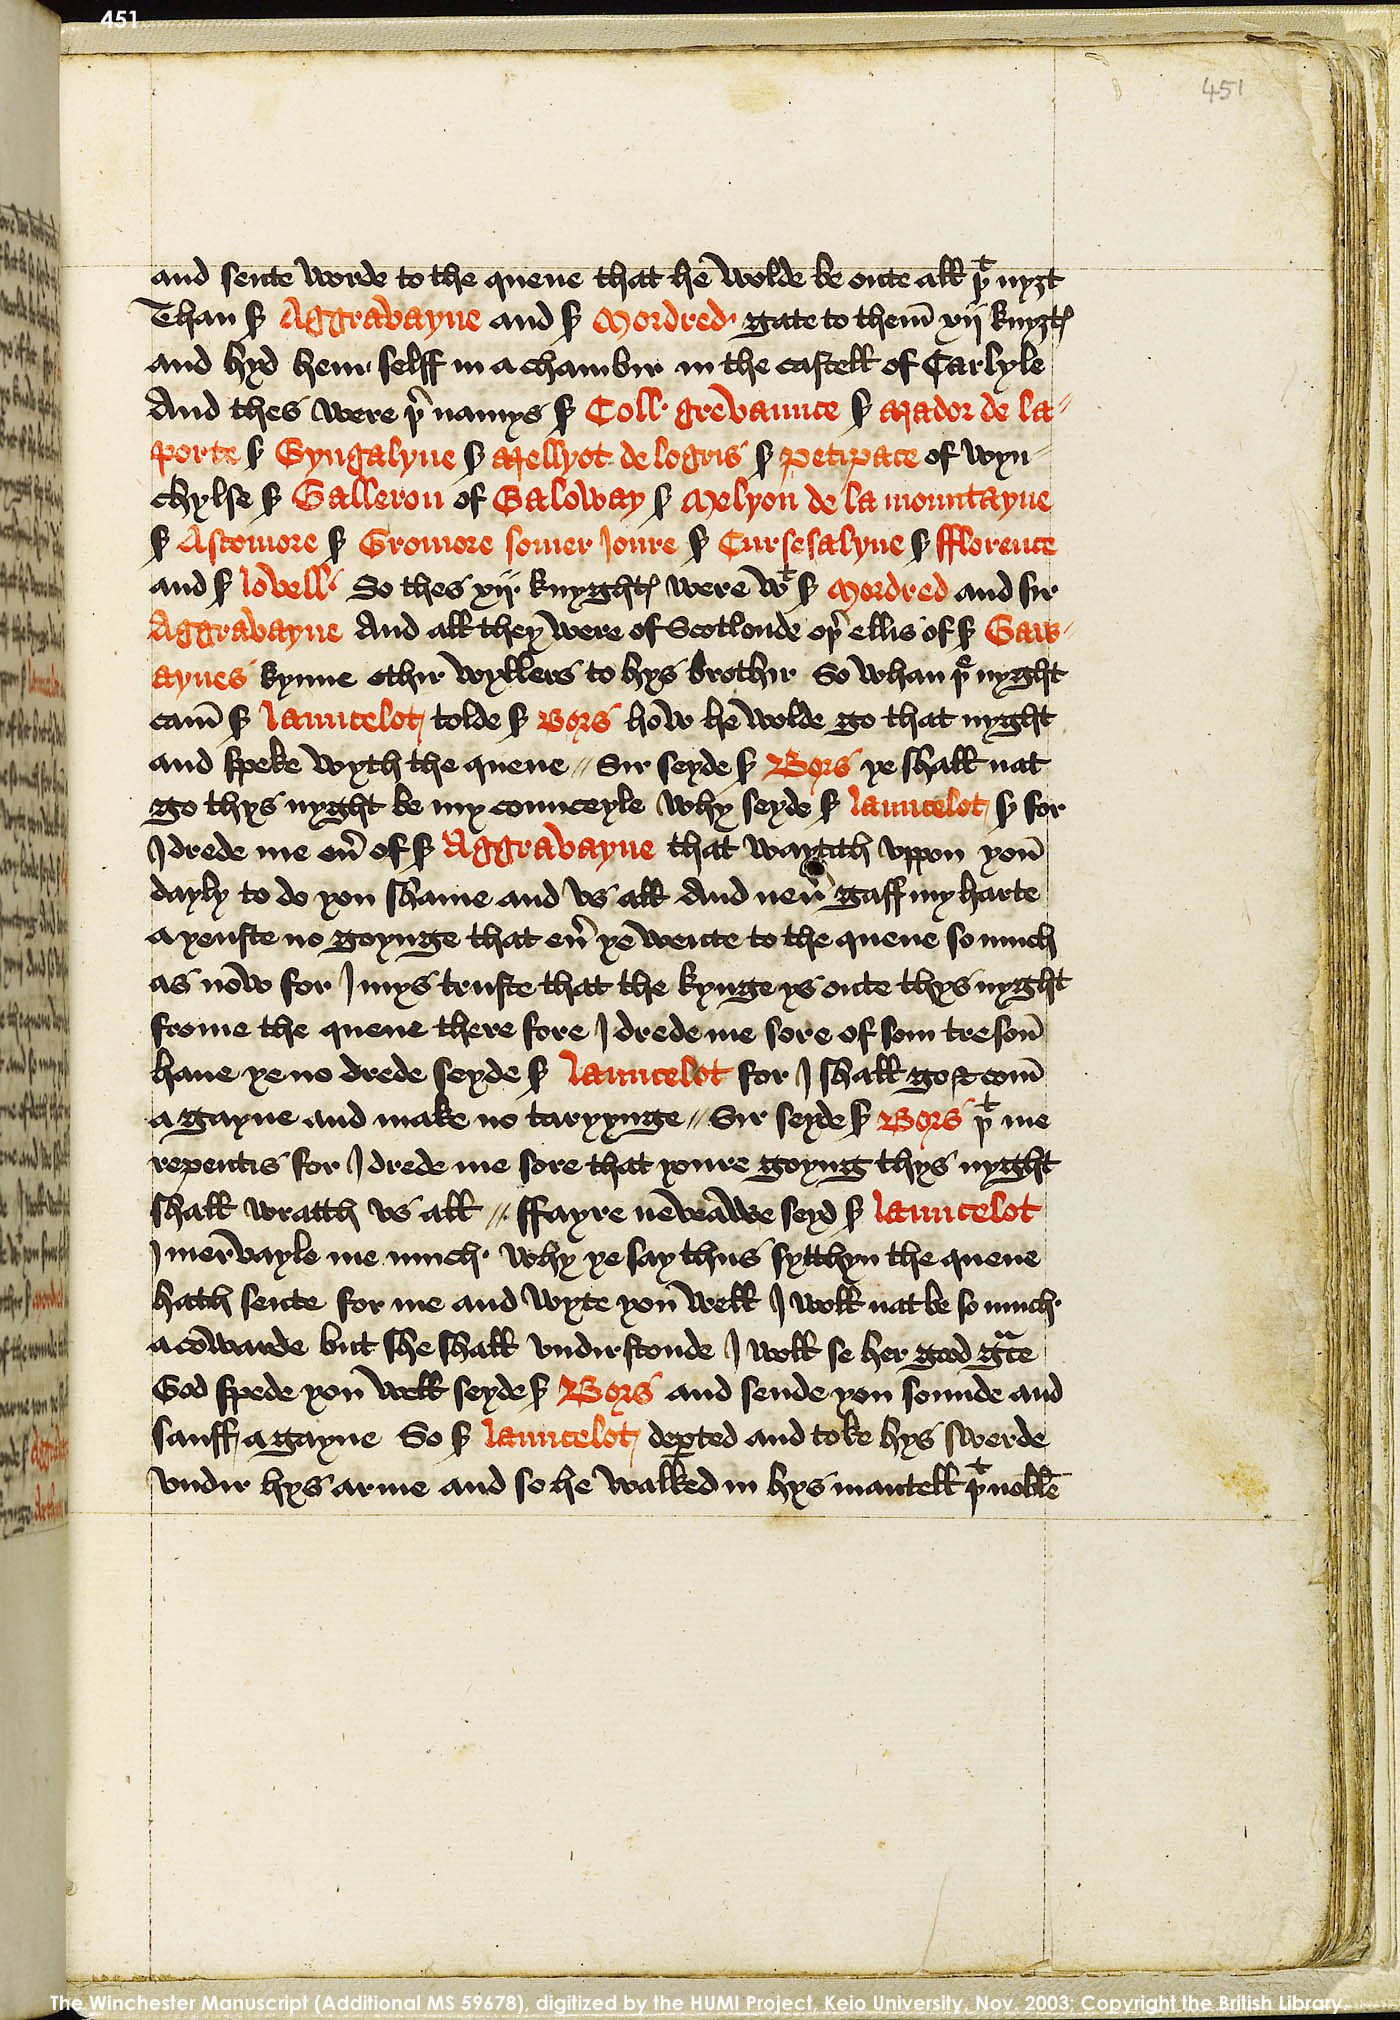 451
451
and sente worde to the quene that he wolde be oute all þt nyzt
Than sr Aggravayne and sr Mordred gate to them xii knyztes
and hyd hem selff in a chambir in the castell of Carlyle
And thes were þr namys sr Coll grevaunce sr Mador de la
porte sr Gyngalyne sr Mellyot de logris sr Petipace of Wyn
chylse sr Galleron of Galoway sr Melyon de la mountayne
sr Astomore sr Gromore somer Ioure sr Curseselayne sr fflorence
and sr lovell So thes xii knyghtes were wt sr Mordred and sir
Aggravayne And all they were of Scotlonde oþr ellis of sr Gaw
aynes kynne othir wyllers to hys brothir So whan þe nyght
cam sr launcelot tolde sr Bors how he wolde go that nyght
and speke wyth the quene // Sir seyde sr Bors ye shall nat
go thys nyght be my counceyle Why seyde sr launcelot sr for
I drede me eu of sr Aggravayne that waytith uppon you
dayly to do you shame and vs all And neu gaff my harte
a yenste no goynge that eu ye wente to the quene so much
as now for I mys truste that the kynge ys oute thys nyght
frome the quene there fore I drede me sore of som treson
haue ye no drede seyde sr launcelot for I shall go & com
a gayne and make no taryynge // Sir seyde sr Bors þt me
repentis for I drede me sore that youre goyng thys nyght
shall wratth vs all // ffayre neveawe seyd sr launcelot
I mervayle me much why ye say thus sytthyn the quene
hath sente for me and wyte you well I woll nat be so much
a cowarde but she shall vndirstonde I woll se her good gce
God spede you well seyde sr Bors and sende you sounde and
sauff a gayne So sr launcelot depted and toke hys swerde
vndir hys arme and so he walked in hys mantell þt noble
The Winchester Manuscript (Additional MS 59678), digitized by the HUMI Project, Keio University, Nov. 2003; Copyright the British Library.